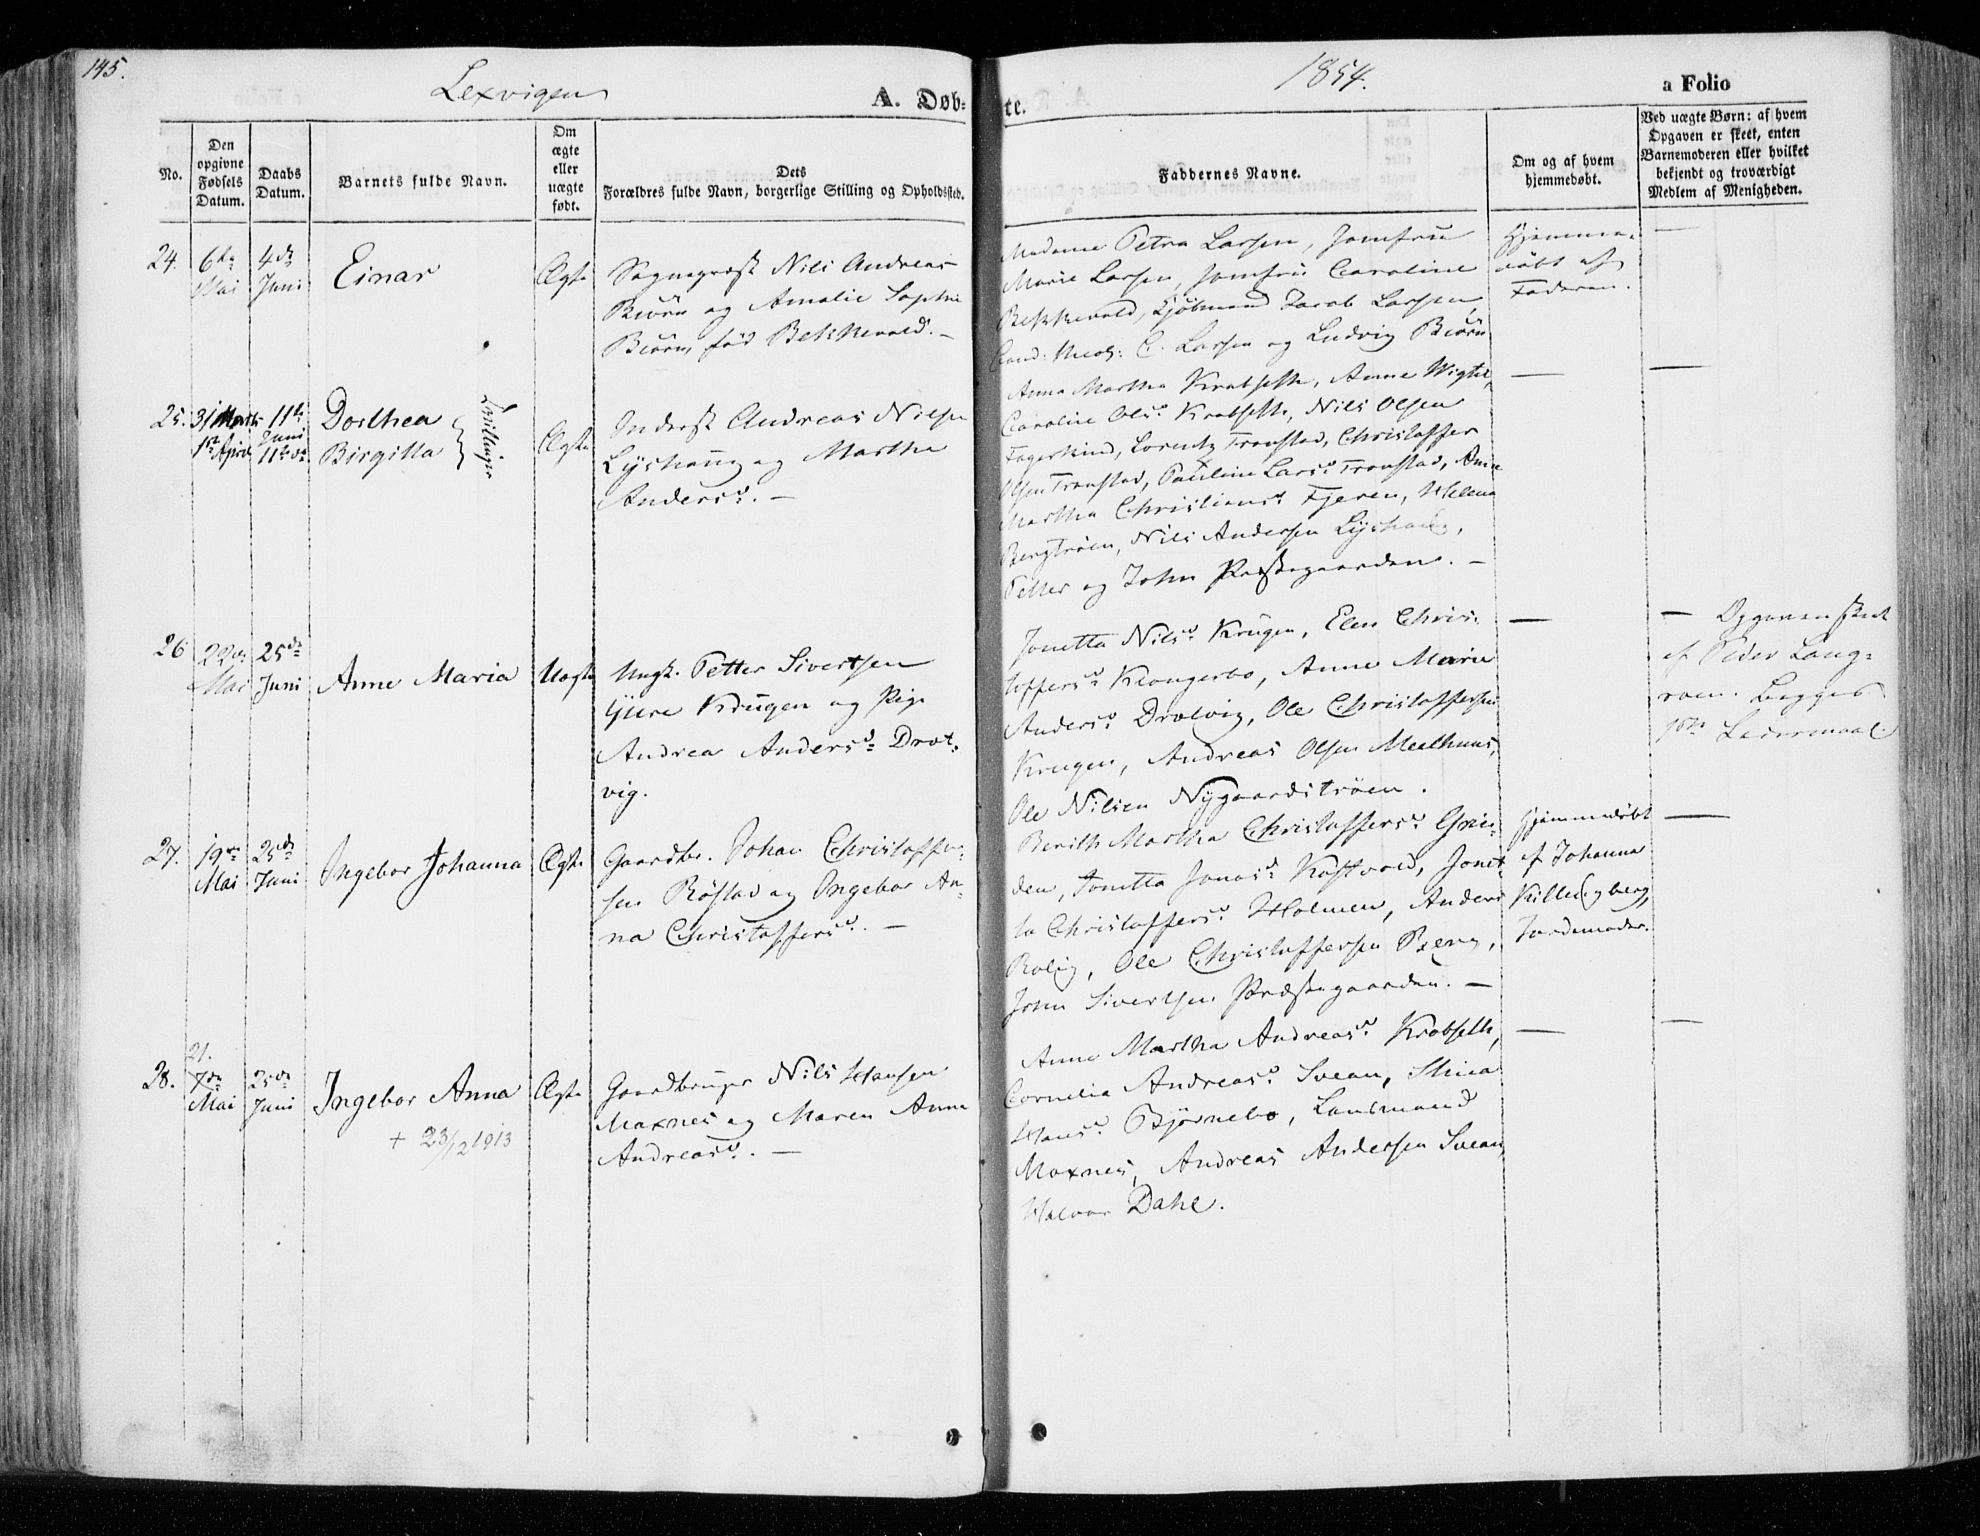 145.
Lexvigen
A. Døb:
te.
1854.
a Folio
No.
Den
opgivne
Fødsels
Datum.
Daabs
Datum.
Barnets fulde Navn.
Om
ægte
eller
uægte
født.
Dets
Forældres fulde Navn, borgerlige Stilling og Opholdssted.
Faddernes Navne.
Om og af hvem
hjemmedøbt.
Ved uægte Børn: af hvem
Opgaven er skeet, enten
Barnemoderen eller hvilket
bekjendt og troværdigt
Medlem af Menigheden.
24.
6te
Mai
4de
Juni
Einar
Ægte
Sognepræst Nils Andreas
Biørn og Amalie Sophie
Biørn, fød Bekkevold. —
Madame Petra Larsen, Jomfrue
Marie Larsen, Jomfru Caroline
Bekkevold, Kjøbmand Jacob Larssen,
Cand: C. Larsen og Ludvig Biørn
Hjemme-
døbt af
Faderen.
—
25.
31 Marts
1ste April
11te
Juni
11te
Dorthea
Birgitta
Tvillinger
Ægte
Inderst Andreas Nilsen
Lyshaug og Martha
Andersd. —
Anna Martha Krabseth, Anne Wigtil,
Caroline Olsd. Krabseth, Nils Olsen
Fagerlind, Lorentz Tronstad, Christoffer
Olsen Tronstad, Pauline Larsd. Tronstad, Anne
Martha Christiansd. Fjeren, Helena
Bergtrøen, Nils Andersen Lyshaug,
Petter og John Præstegaarden. —
—
—
26
22de
Mai
25de
Juni
Anne Maria
Uægte
Ungk. Petter Sivertsen
Ytre Krugen og Pige
Andrea Andersd. Drat-
vig.
Jonetta Nilsd. Krugen, Elen Chris-
toffersd. Klongerbo, Anne Marie
Andersd. Dratvig, Ole Christoffersen
Krugen, Andreas Olsen Meelhuus,
Ole Nilsen Nygaardstrøen.
—
— Opgaven skeet
af Peder Lang-
roen. Begges
1ste Leiermaal.
27.
19de
Mai
25de
Juni
Ingebor Johanna
Ægte
Gaardbr. Johan Christoffer-
sen Røstad og Ingebor An-
na Christoffersd. —
Berith Martha Christoffersd. Grin-
den, Jonetta Jonasd. Kaftvold, Jonet-
ta Christoffersd. Holmen, Anders
Rolig, Ole Christoffersen Berg,
John Sivertsen Præstegaarden. —
Hjemmedøbt
af Johanna
Killingberg,
Jordemoder.
—
28.
21.
7de
Mai
25de
Juni
Ingebor Anna
+ 23/12 1913
Ægte
Gaardbruger Nils Hansen
Maxnes og Maren Anna
Andreasd. —
Anne Martha Andreasd. Krabseth,
Cornelia Andreasd. Svean, Stina
Hansd. Bjørnebo, Lansmand
Maxnes, Andreas Andersen Svean,
Halvor Dahl.
—
—